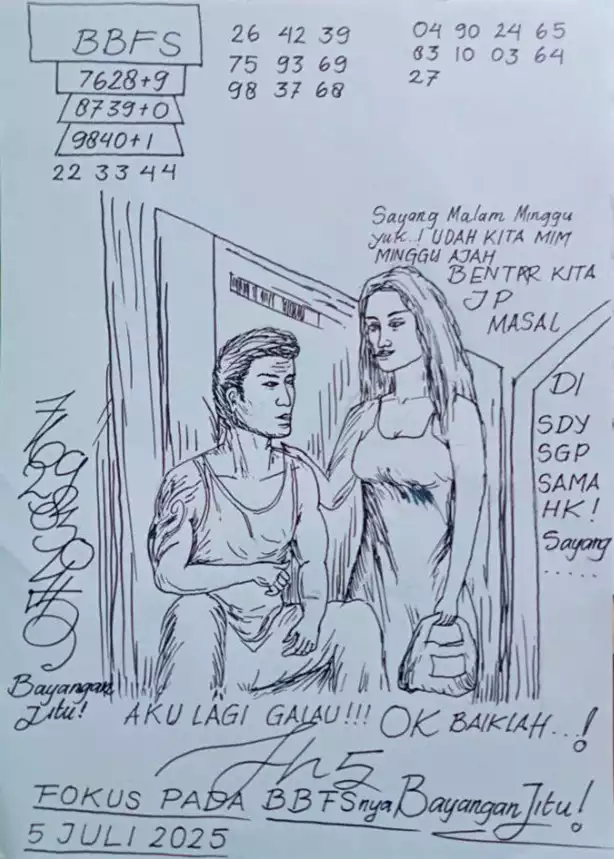 BBFS
7628+9
8739+0
9840+1
22 33 44
26 42 39
75 93 69
98 37 68
04 90 24 65
83 10 03 64
27
Sayang Malam Minggu
yuk..! UDAH KITA MIM
MINGGU AJAH
BENTAR KITA
JP
MASAL
DI
SDY
SGP
SAMA
HK!
Sayang
......
Bayangan
Jitu!
AKU LAGI GALAU!!!
OK BAIKLAH...!
FOKUS PADA BBFSnya Bayangan Jitu!
5 JULI 2025